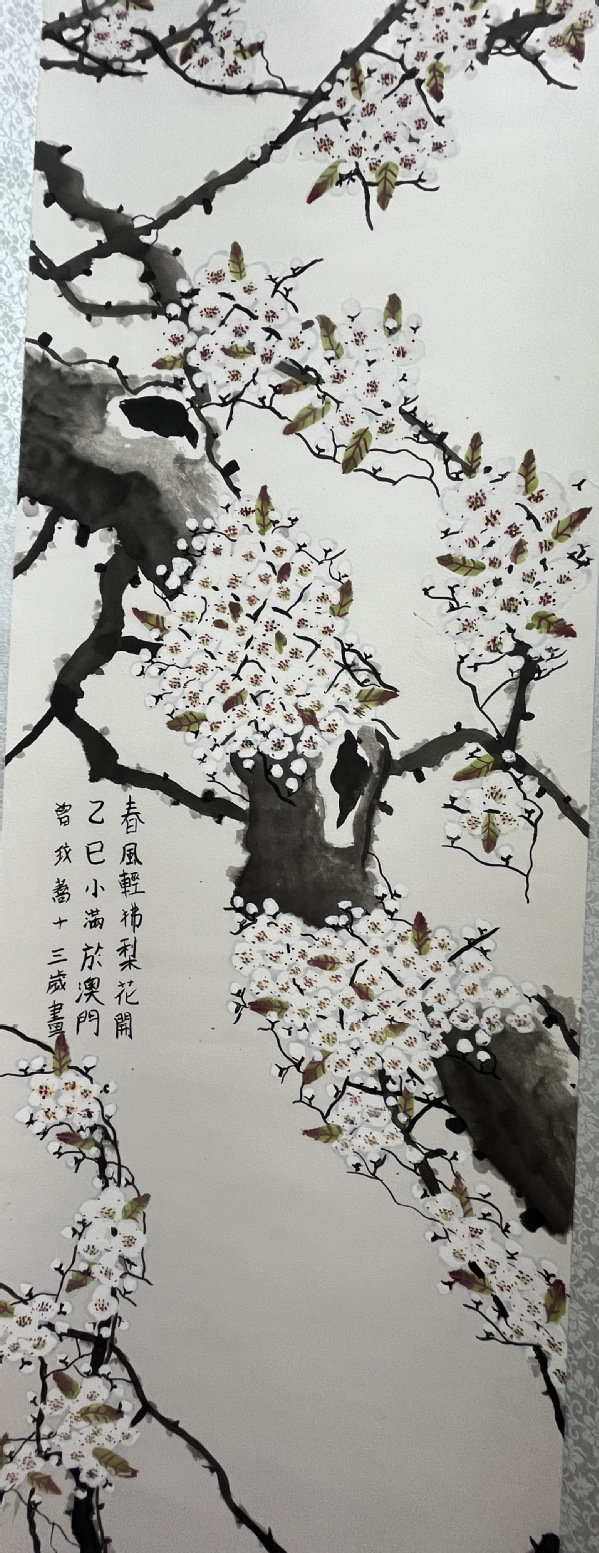 春風輕拂梨花開
乙巳小滿於澳門
曾 蕎十三歲畫